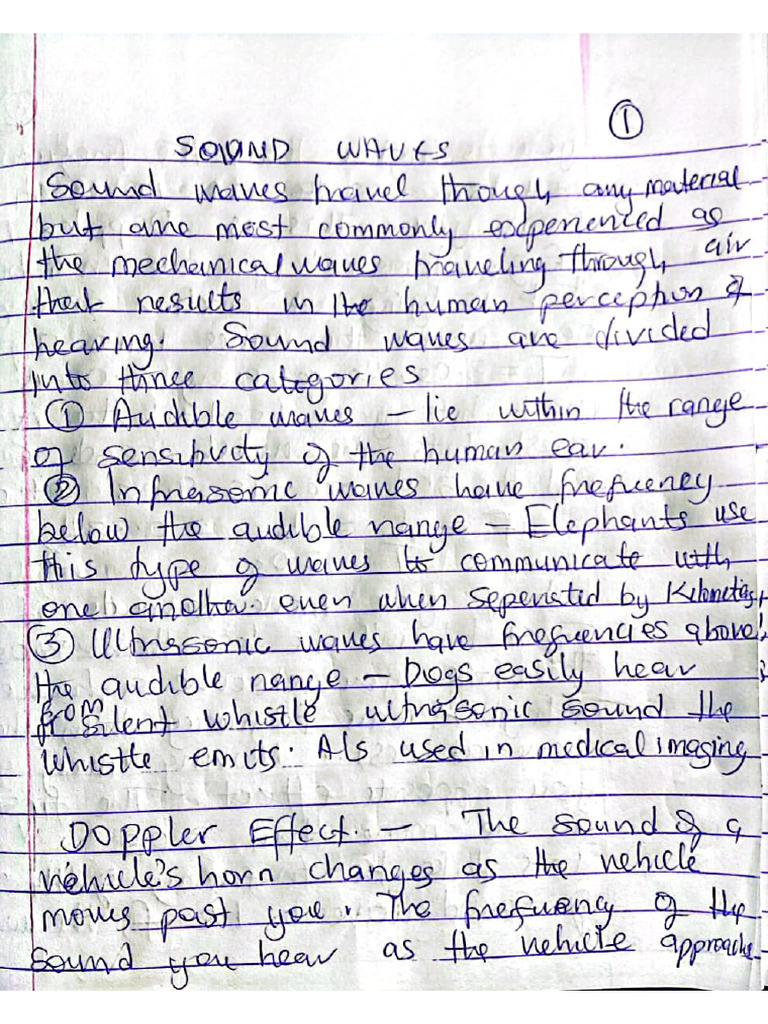 ①
SOUND WAVES
Sound waves travel through any material
but are most commonly experienced as
the mechanical waves traveling through air
that results in the human perception of
hearing. Sound waves are divided
into three categories
① Audible waves – lie within the range
of sensibility of the human ear.
② Infrasonic waves have frequency
below the audible range – Elephants use
this type of waves to communicate with
one another even when seperated by Kilometers,
③ Ultrasonic waves have frequencies above
the audible range – Dogs easily hear
from silent whistle ultrasonic sound the
whistle emits. Als used in medical imaging
Doppler Effect. – The sound of a
vehicle's horn changes as the vehicle
moves past you. The frequency of the
sound you hear as the vehicle approache